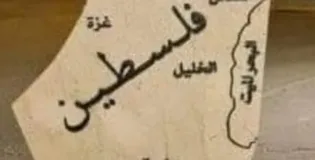 غزة
فلسطين
الخليل
البحر الميت